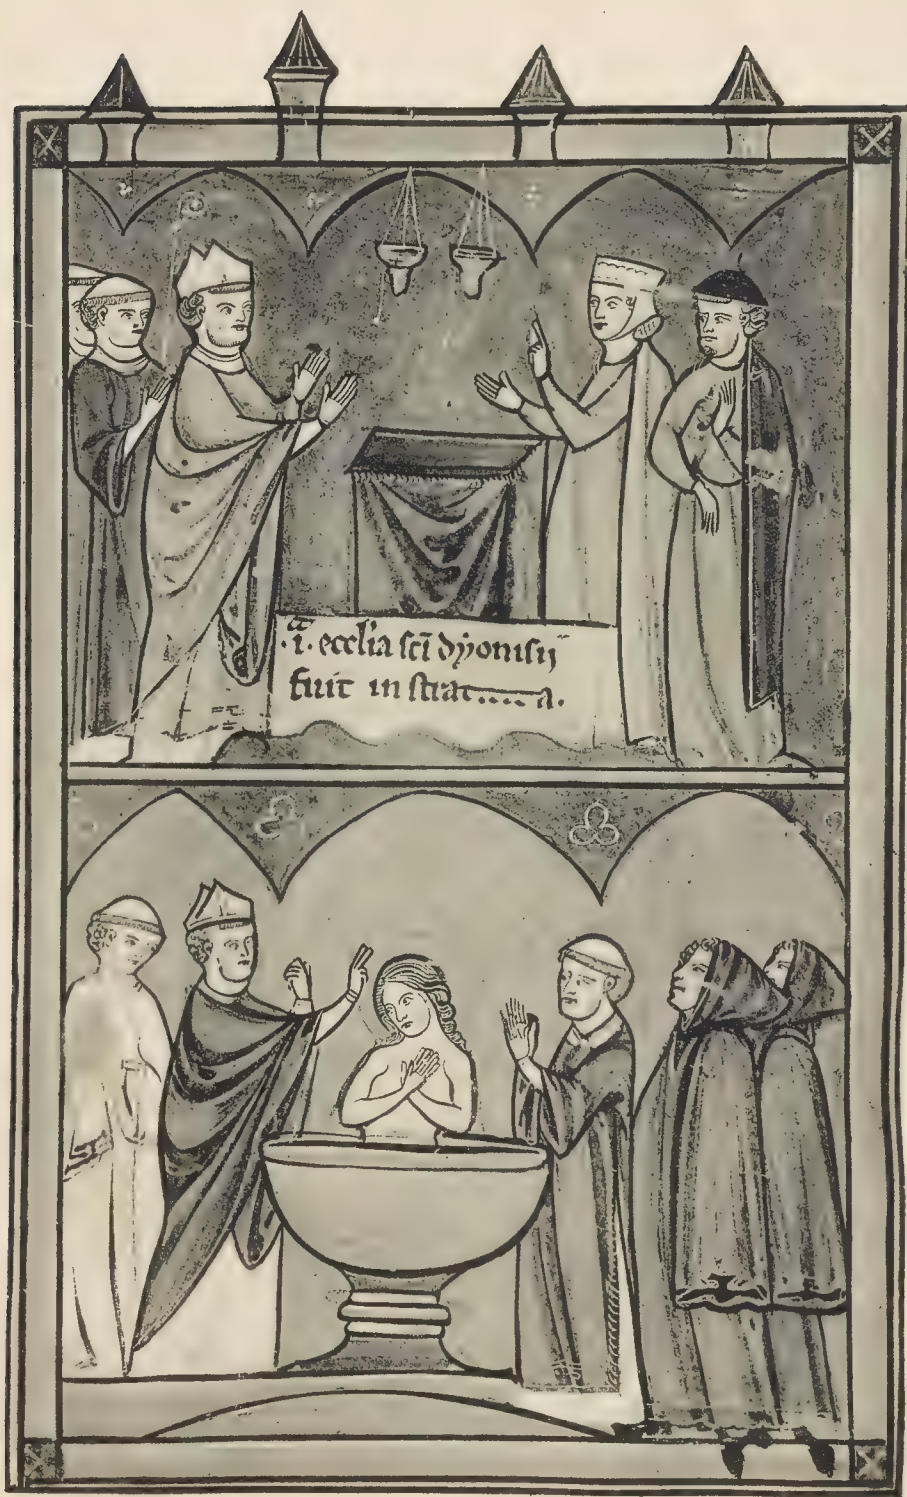 .i. ecclia scī dyonisij
fuit in strat....a.